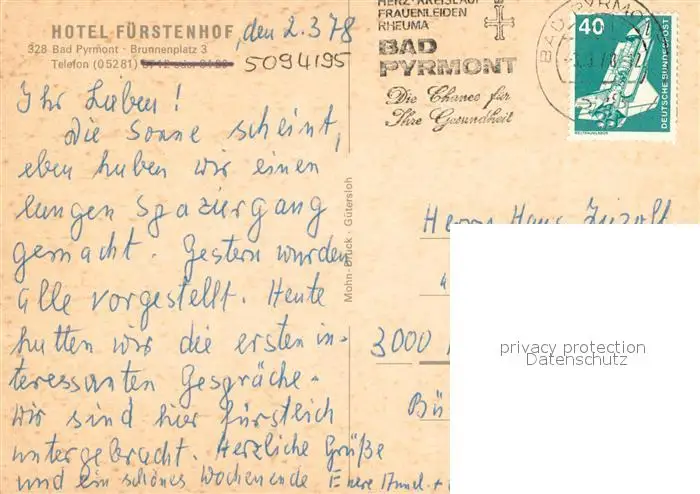 HOTEL FÜRSTENHOF, den 2.3.78
328 Bad Pyrmont · Brunnenplatz 3
Telefon (05281) 5094195
Ihr Lieben!
Die Sonne scheint,
eben haben wir einen
langen Spaziergang
gemacht. Gestern wurden
alle vorgestellt. Heute
hatten wir die ersten in-
teressanten Gespräche.
Wir sind hier fürstlich
untergebracht. Herzliche Grüße
und ein schönes Wochenende Eure
HERZ-KREISLAUF
FRAUENLEIDEN
RHEUMA
BAD
PYRMONT
Die Chance für
Ihre Gesundheit
BAD PYRMONT
40
DEUTSCHE BUNDESPOST
WELTRAUMLABOR
Mohn-Druck · Gütersloh
Herrn Hans
3000
Bü
privacy protection
Datenschutz